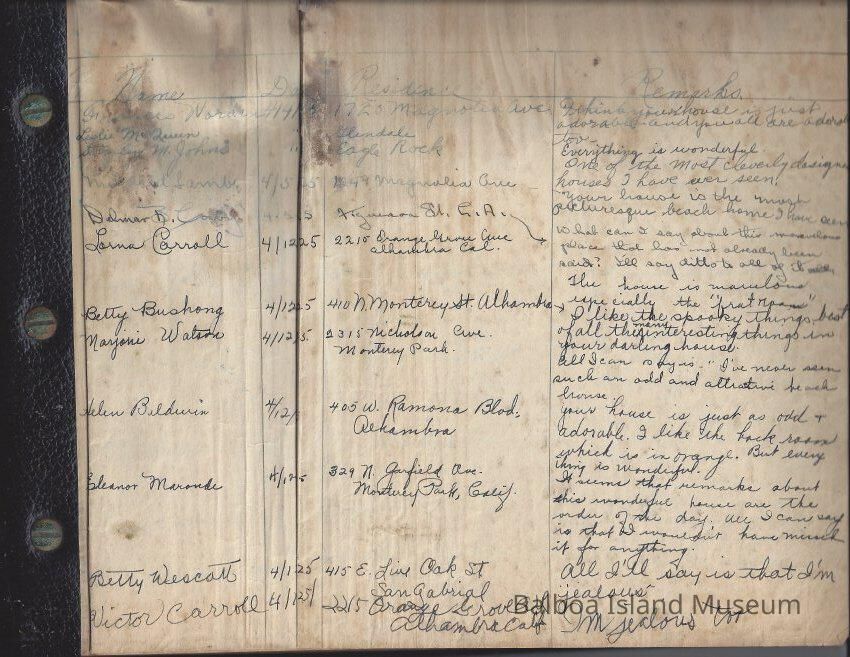 Name Date Residence Remarks
1720 Magnolia Ave. I think your house is just
adorable and you all are
Glendale too.
W. Johns " Eagle Rock Everything is wonderful.
One of the most cleverly
houses I have ever seen.
Magnolia Ave Your house is the most
picturesque beach home I have seen
Figueroa St. L.A. What can I say about this marvelous
Lorna Carroll 4/12 25 2215 Orange Grove Ave place that has not already been
Alhambra Cal. said? I'll say ditto to all of it
The house is marvelous
especially the
Betty Bushong 4/12 25 410 N. Monterey St. Alhambra I like the spooky things best
Marjorie Watson 4/12/25 2315 Nicholson Ave. of all the many interesting things in
Monterey Park. your darling house.
All I can say is "I've never seen
such an odd and attrative beach
house.
Helen Baldwin 4/12/ 405 W. Ramona Blvd. Your house is just as odd +
Alhambra adorable. I like the back room
which is in orange. But every
thing is wonderful.
Eleanor 4/12 329 N. Garfield Ave. It seems that remarks about
Monterey Park, Calif. this wonderful house are the
order of the day. All I can say
is that I wouldn't have missed
it for anything.
Betty Wescott 4/12 25 415 E. Live Oak St All I'll say is that I'm
San Gabrial jealous
Victor Carroll 4/12/ 2215 Orange Grove I'm jealous too
Alhambra Calf
Balboa Island Museum